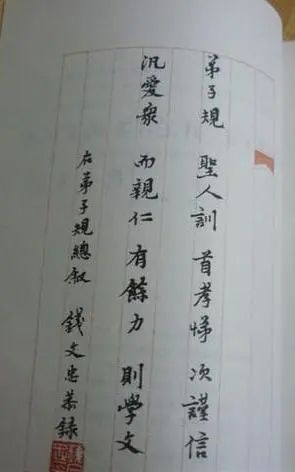 弟子規 聖人訓 首孝悌 次謹信
汎愛衆 而親仁 有餘力 則學文
右弟子規總叙 錢文忠恭録